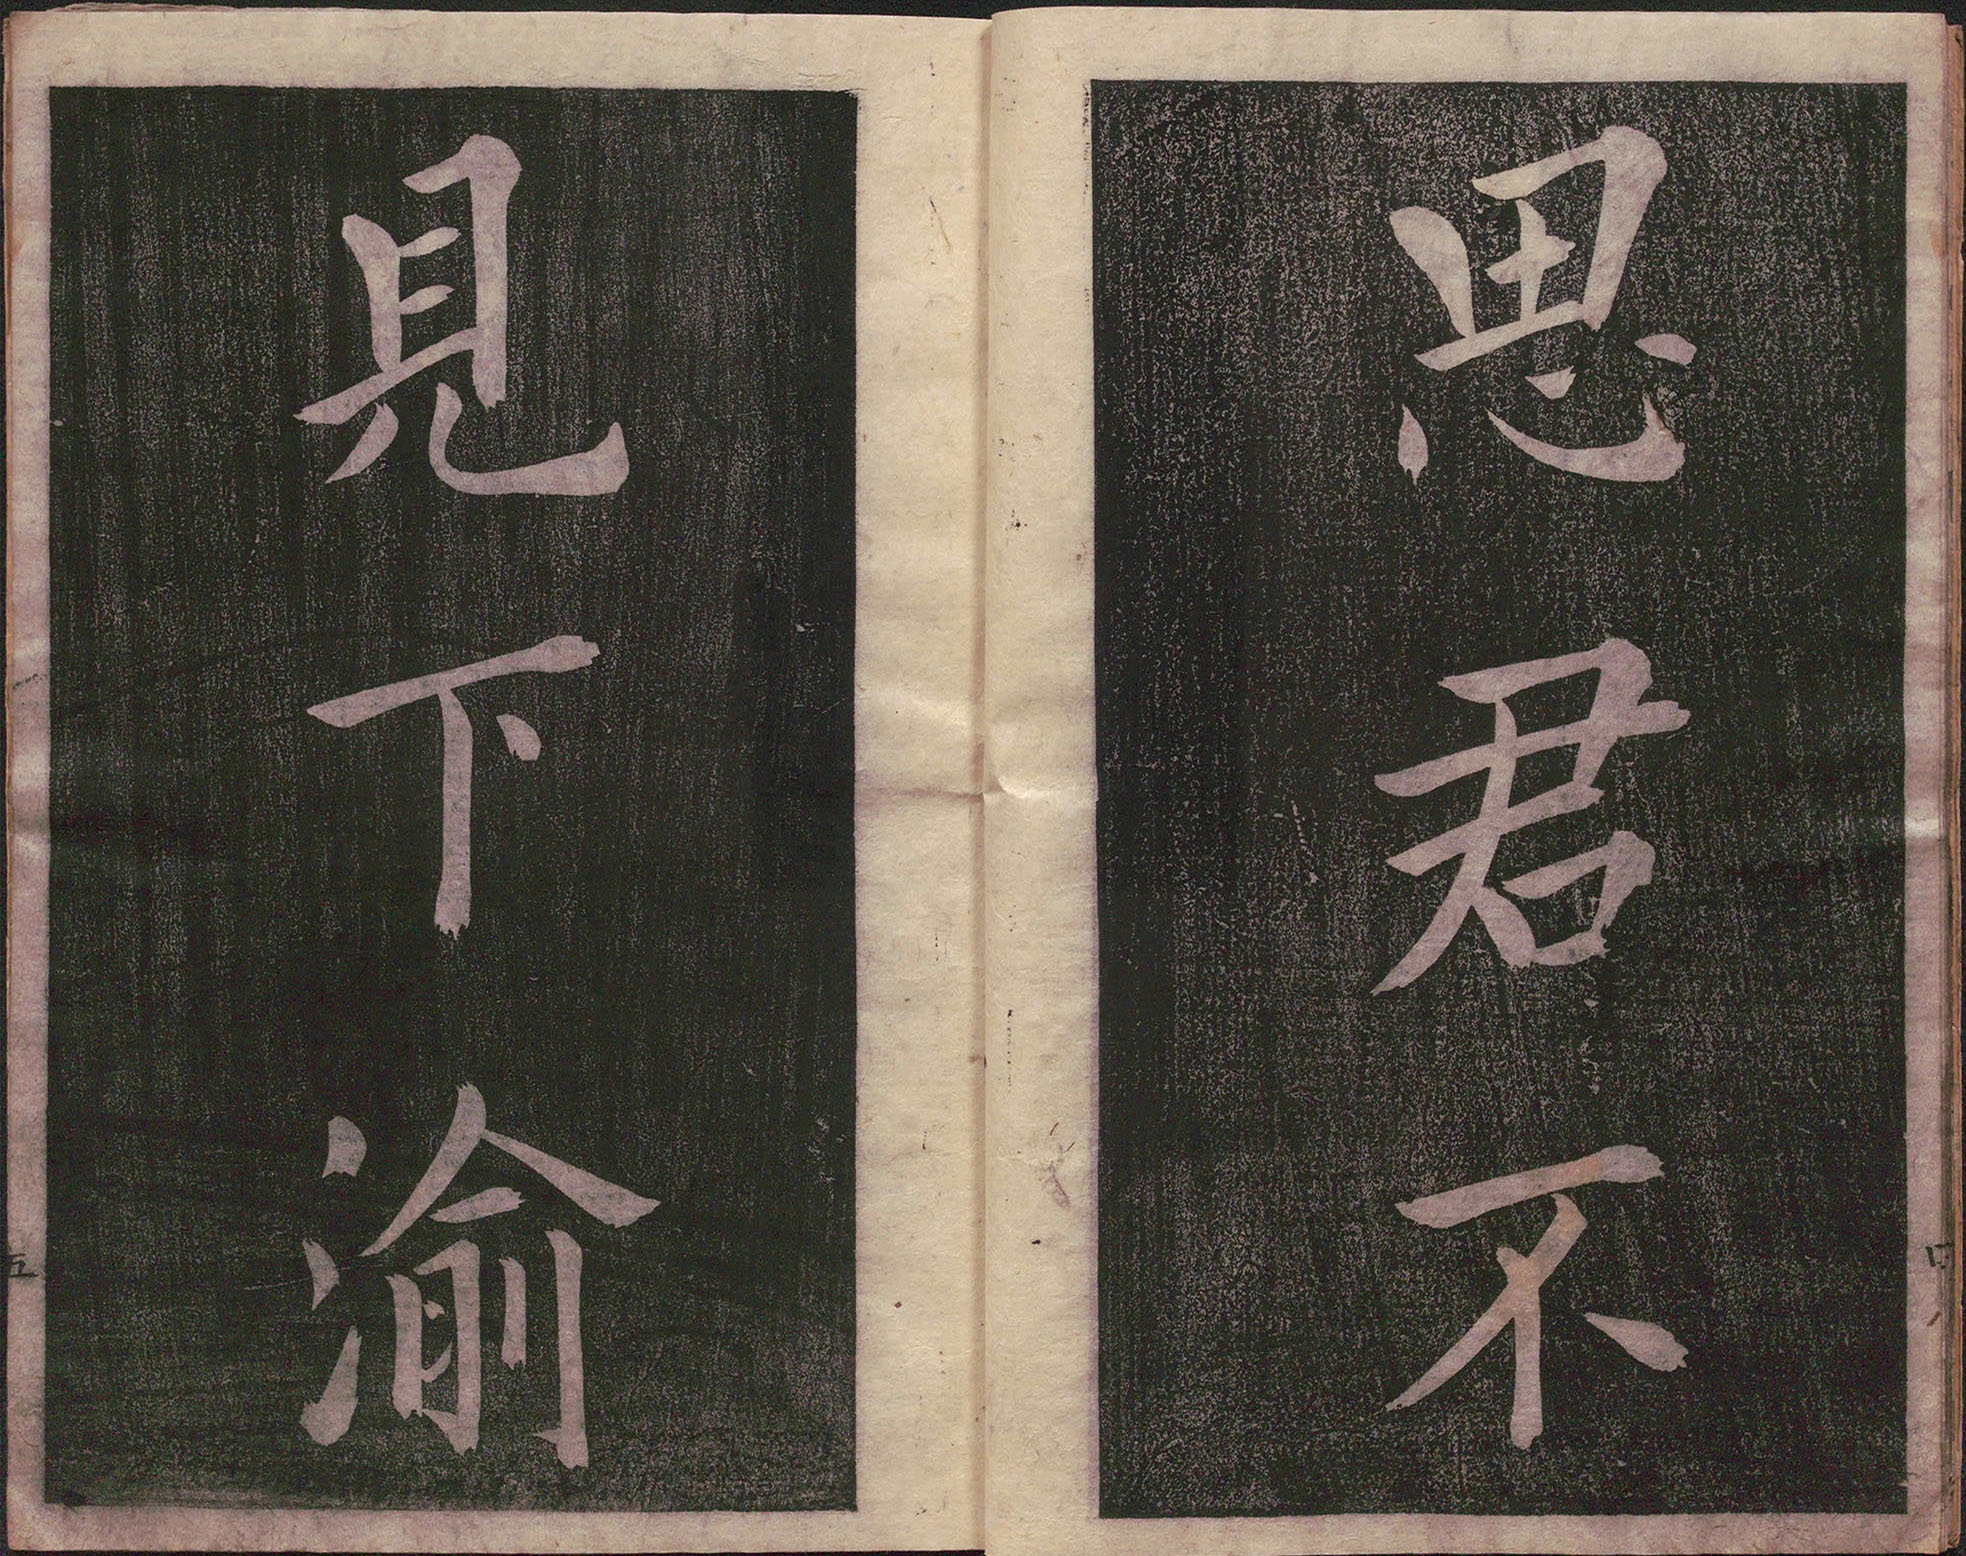 思君不
見下渝
五